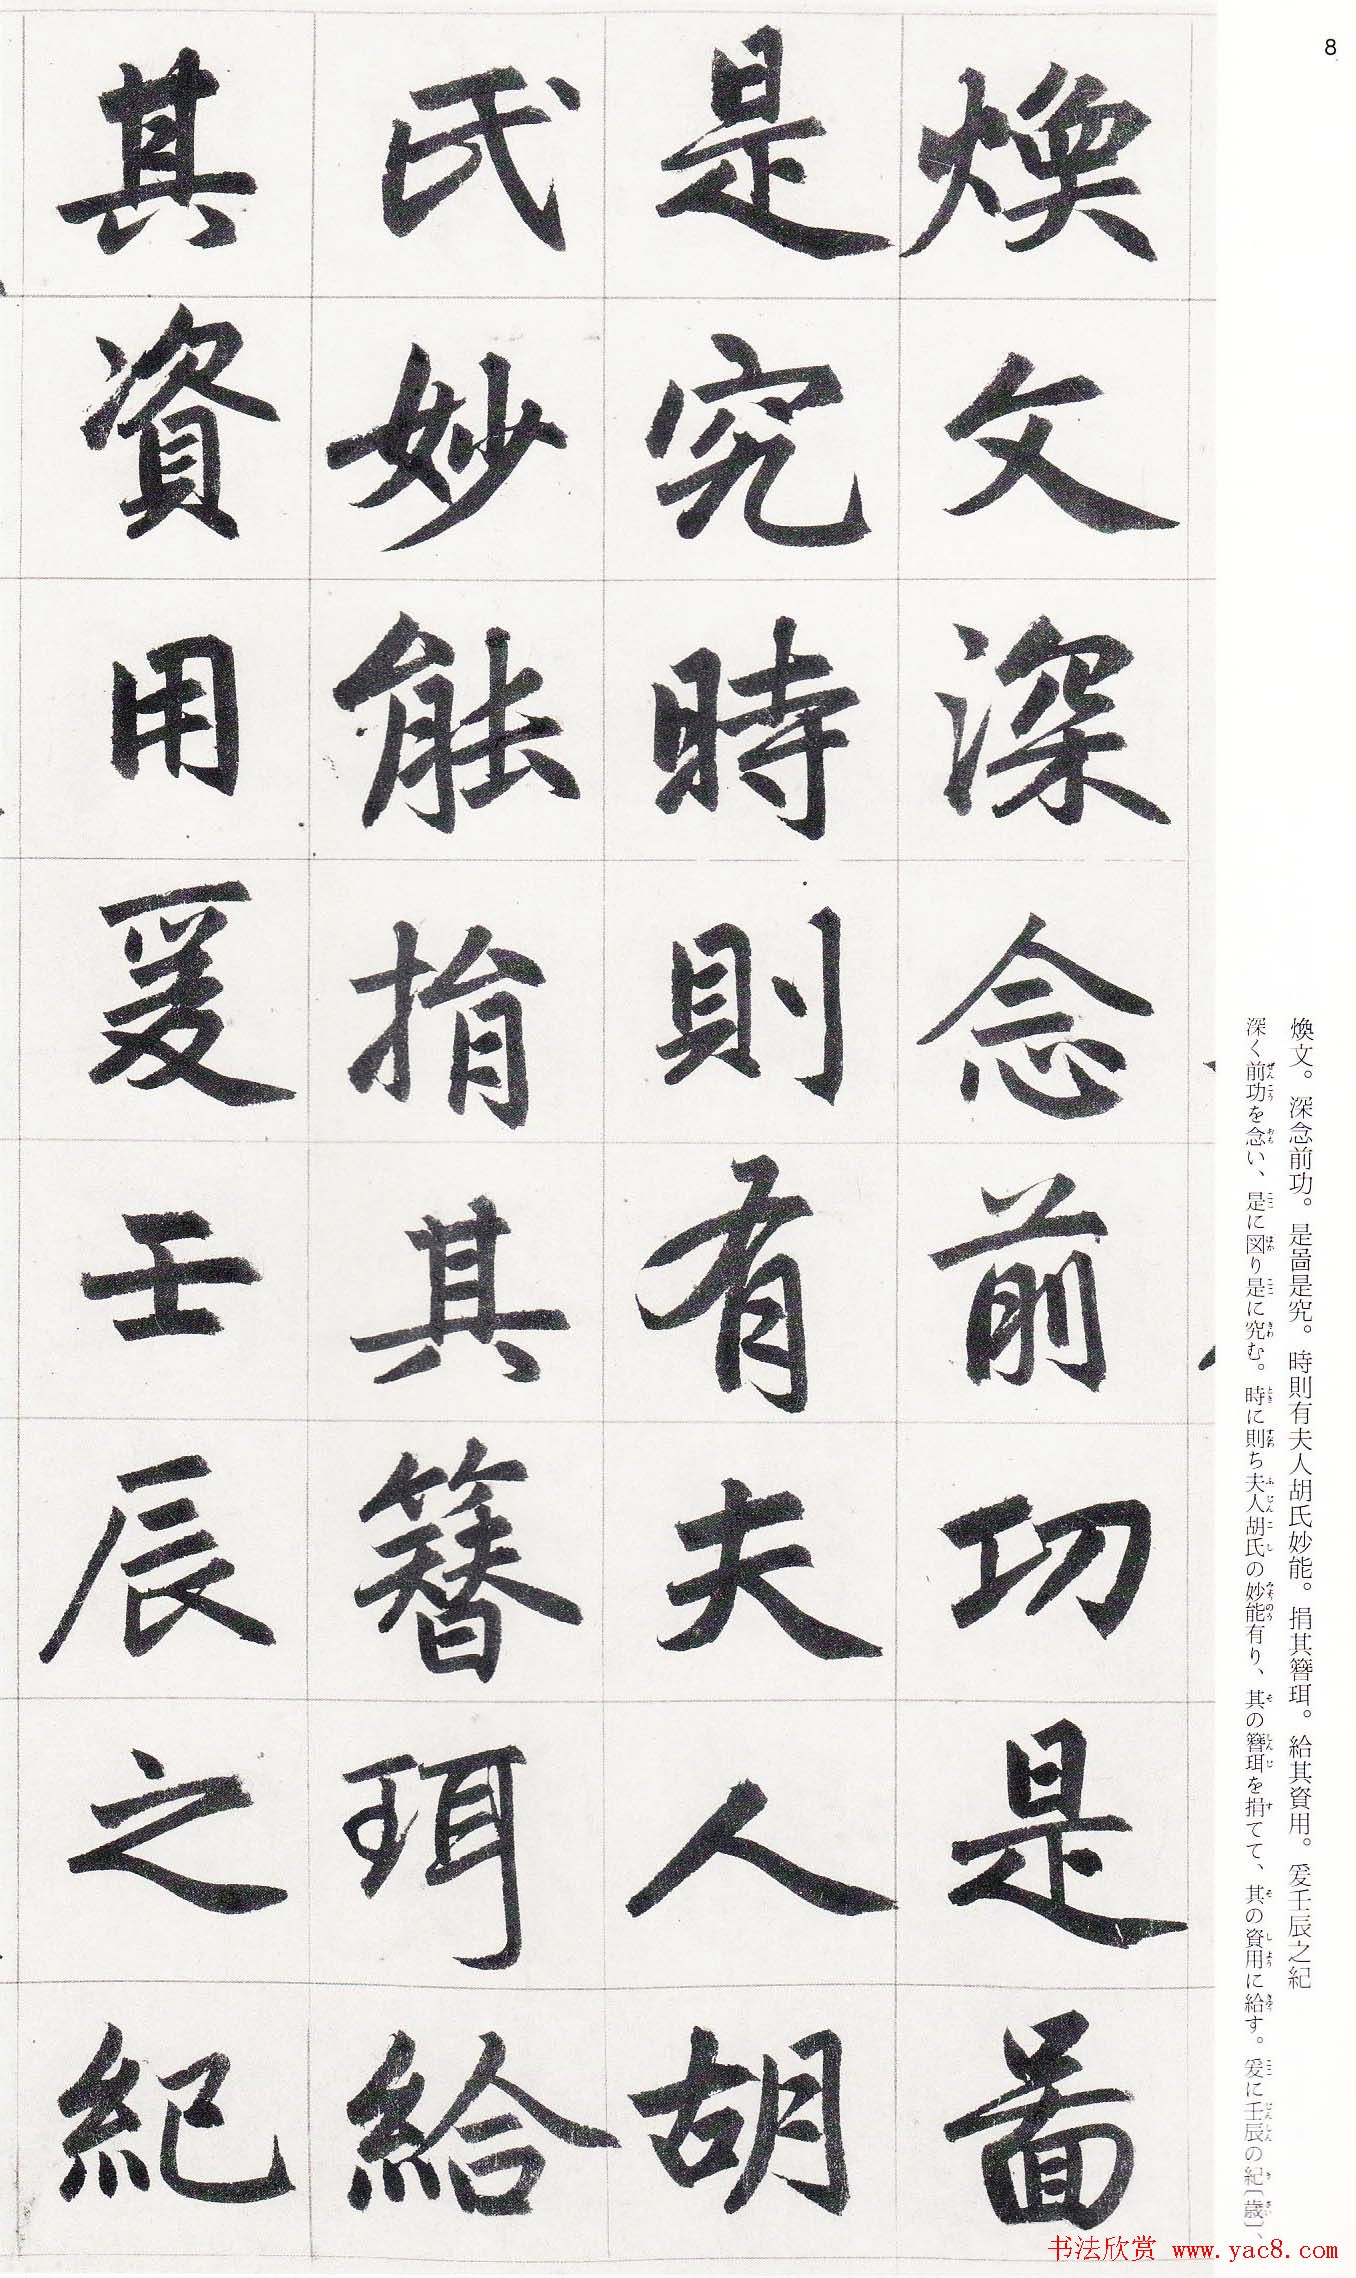 8
煥文深念前功是啚
是究時則有夫人胡
氏妙能捐其簪珥給
其資用爰壬辰之紀
煥文。深念前功。是啚是究。時則有夫人胡氏妙能。捐其簪珥。給其資用。爰壬辰之紀
深く前功を念い、是に図り是に究む。時に則ち夫人胡氏の妙能有り、其の簪珥を捐てて、其の資用に給す。爰に壬辰の紀〔歳〕、
书法欣赏 www.yac8.com